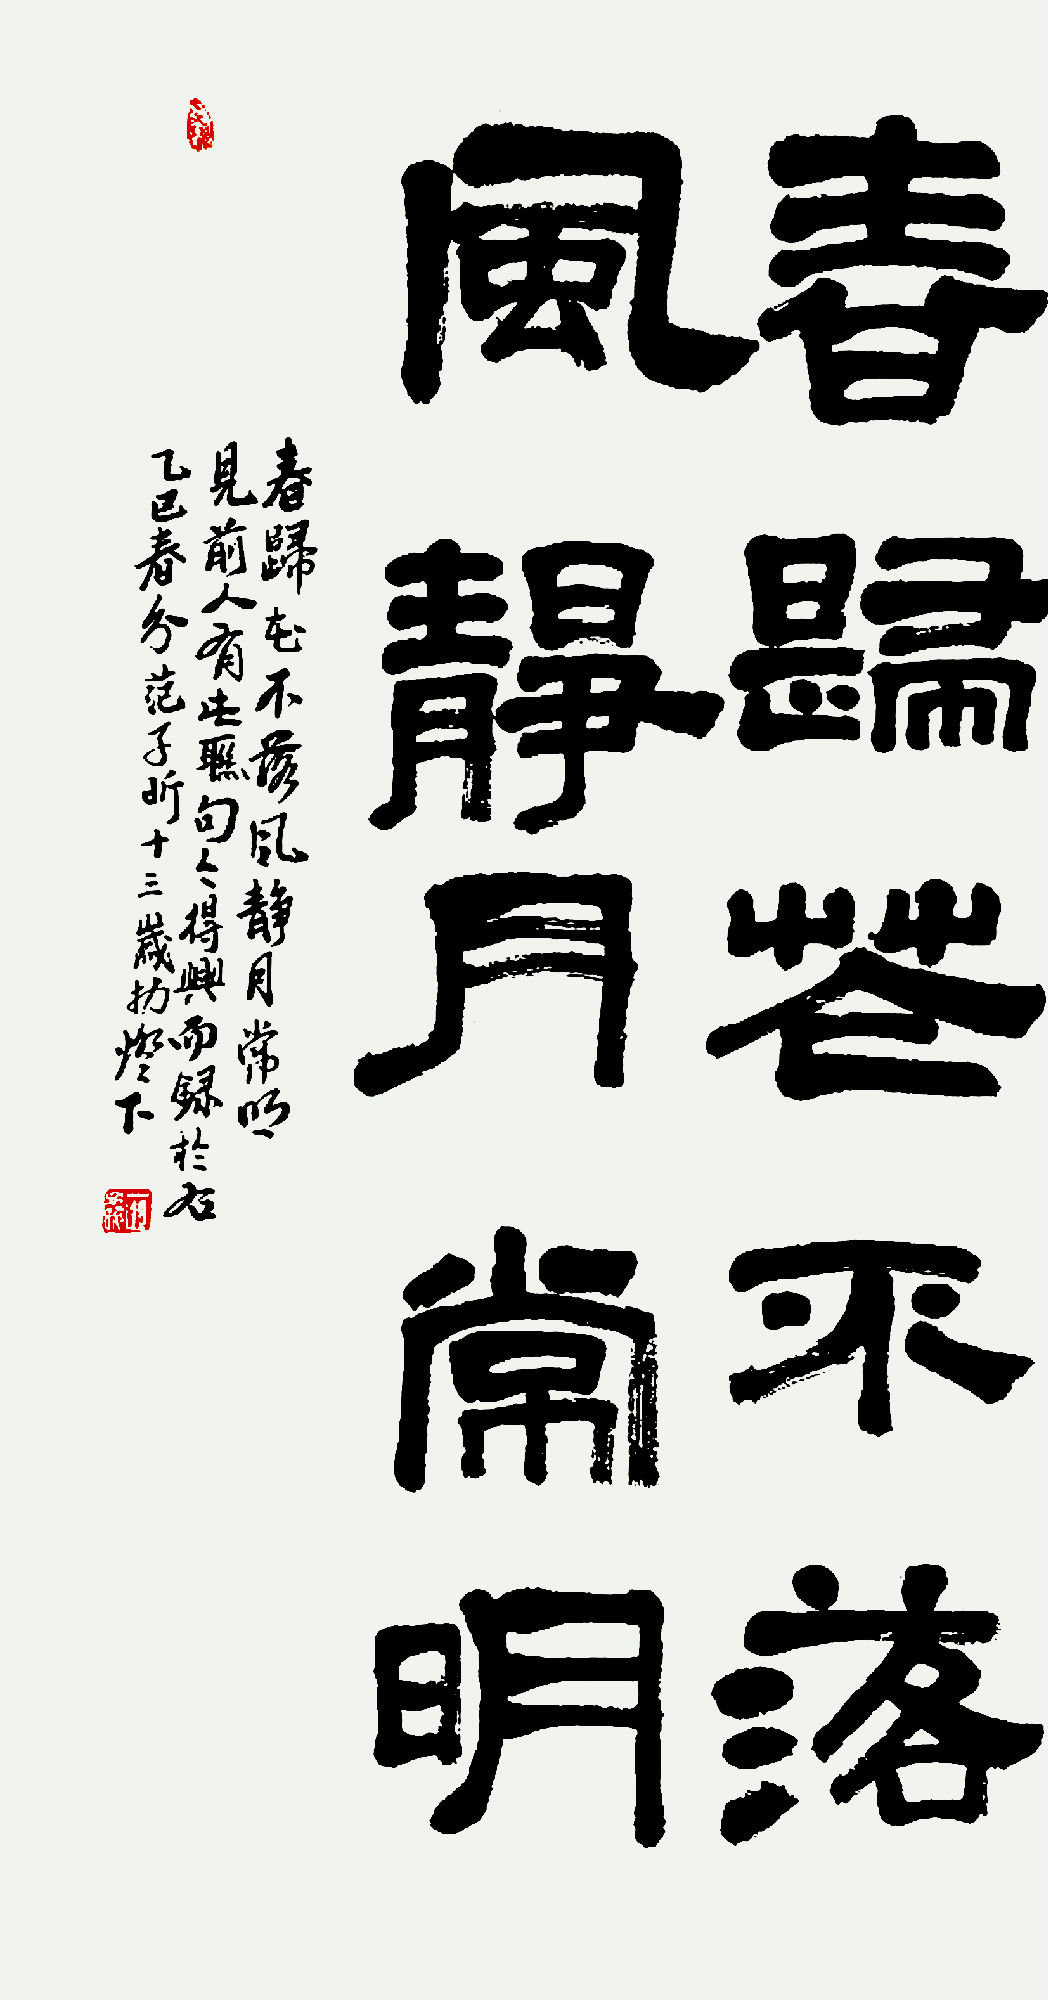 春歸花不落
風靜月常明
春歸花不落風靜月常明
見前人有此聯句今得興而録於右
乙巳春分范子昕十三歲於燈下